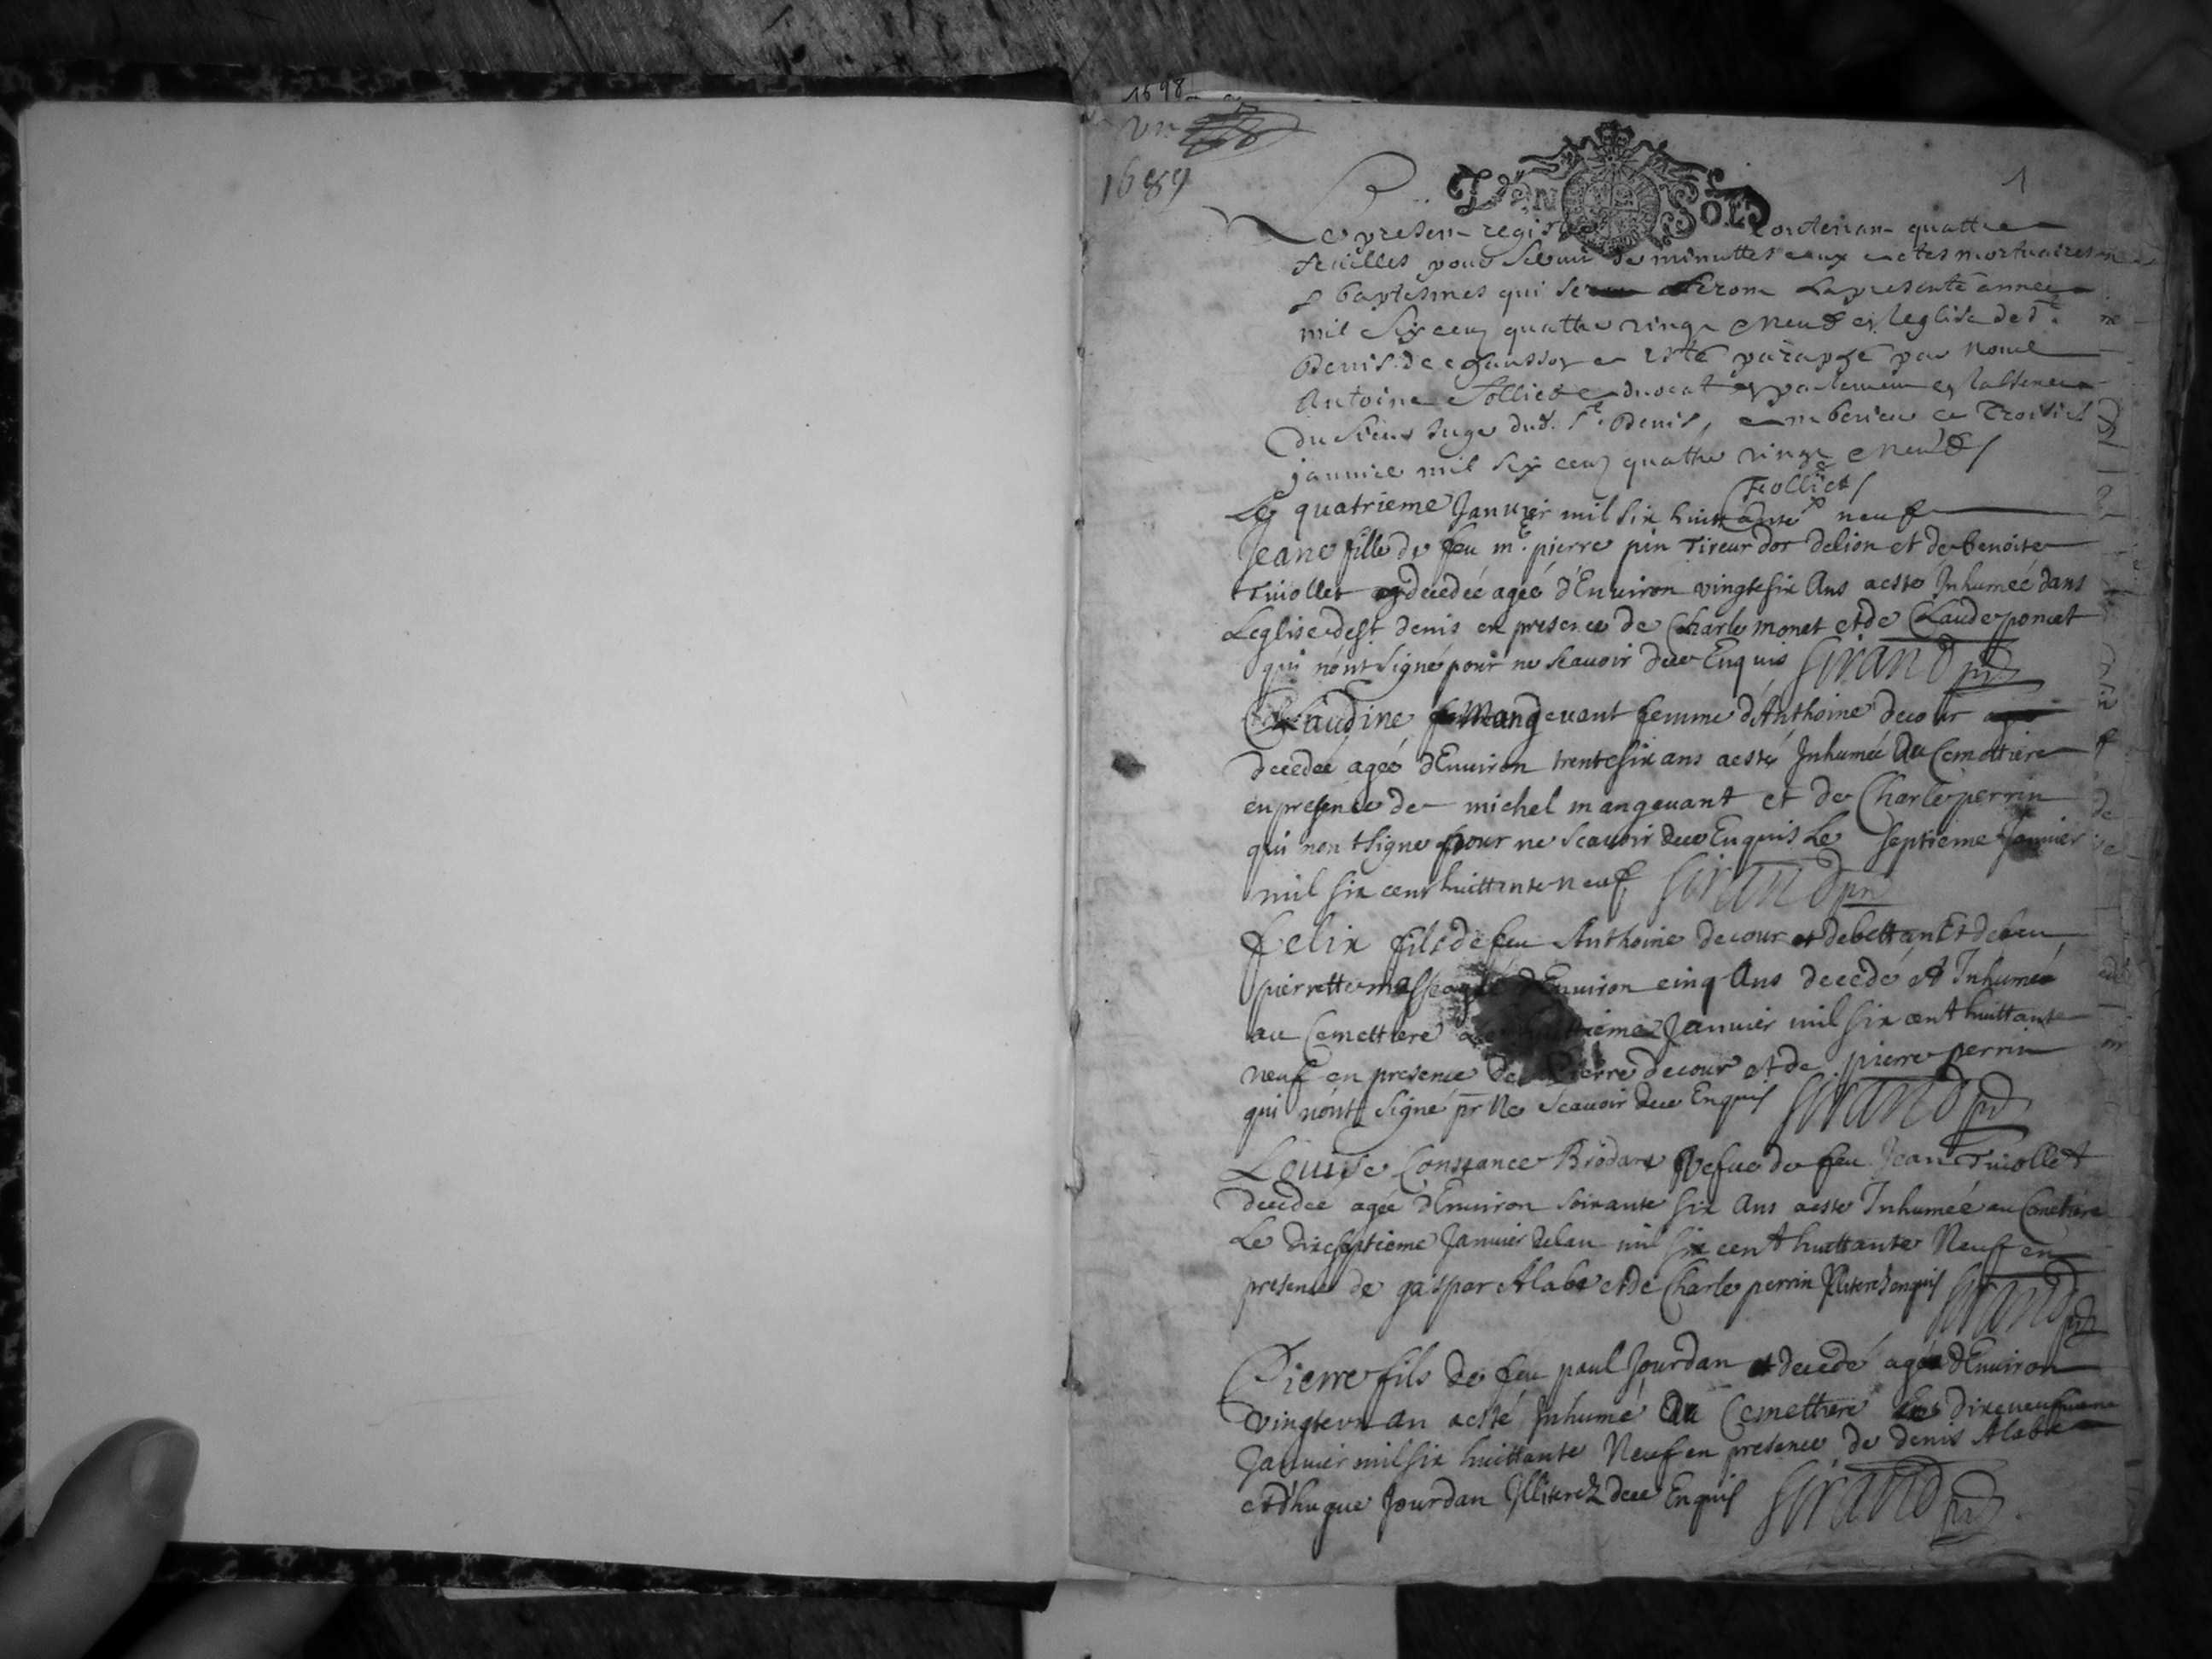 1698
vn
1689
1
UN SOL
Le present registre contenant quattre
feuilles pour servir de minuttes aux actes mortuaires
& baptesmes qui se feront la presente annee
mil six cens quattre vingt & neuf en leglise de St
Denis de chausson a esté paraphé par nous
Antoine Folliet advocat en parlement en labsence
du sieur juge dud. St Denis, amberieu ce troisie
janvier mil six cens quattre vingt & neuf /
Folliet /
Le quatrieme Janvier mil six huittante neuf
Jeane fille de feu me. pierre pin Tireur dor delion et de benoite
Tuiollet decedeé ageé d'Enuiron vingtesix Ans aesté Inhumeé dans
Leglise de st denis en presence de Charle monet et de Claude poncet
qui n'ont signé pour ne scauoir dece Enquis Girand
Claudine Mangeuant femme d'Anthoine decour
decedeé ageé d'Enuiron trentesix ans aesté Inhumeé au Cemettiere
en presence de michel mangeuant et de Charle perrin
qui nont signe pour ne scauoir dece Enquis Le septieme Januier
mil six cent huittante neuf Girand
Felix fils de feu Anthoine decour et de
pierrette agé d'Enuiron cinq Ans decedé et Inhumé
au Cemettiere Januier mil six cent huittante
neuf en presence de pierre decour et de pierre perrin
qui nont signé pr ne scauoir dece Enquis Girand
Louise Constance Brodart vefue de feu Jean Tuiollet
decedeé ageé d'Enuiron soixante six Ans aesté Inhumeé au Cemetiere
Le dixseptieme Januier de lan mil six cent huittante Neuf en
presence de gaspar Alabe et de Charle perrin Illiterez enquis Girand
Pierre fils de feu paul Jourdan decedé agé d'Enuiron
vingtevn an aesté Inhumé au Cemettiere dixneufuieme
Januier mil six huittante Neuf en presence de denis Alabe
et d'hugue Jourdan Illiterez dece Enquis Girand